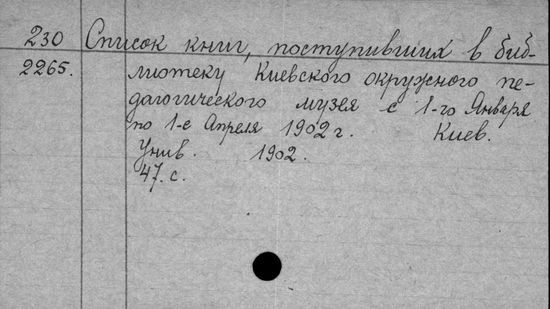 230 Список книг, поступивших в биб-
2265. лиотеку Киевского окружного пе-
дагогического музея с 1-го Января
по 1-е Апреля 1902 г. Киев.
Унив. 1902.
47. с.